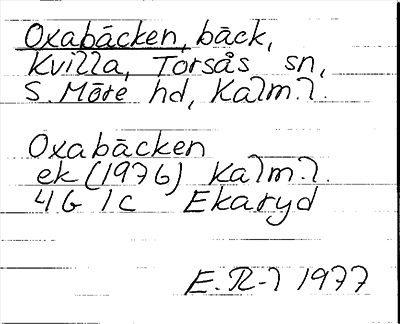 Oxabäcken, bäck,
Kvilla, Torsås sn,
S. Möre hd, Kalm.l.
Oxabäcken
ek (1976) Kalm.l.
4G 1c Ekaryd
E.R-l 1977